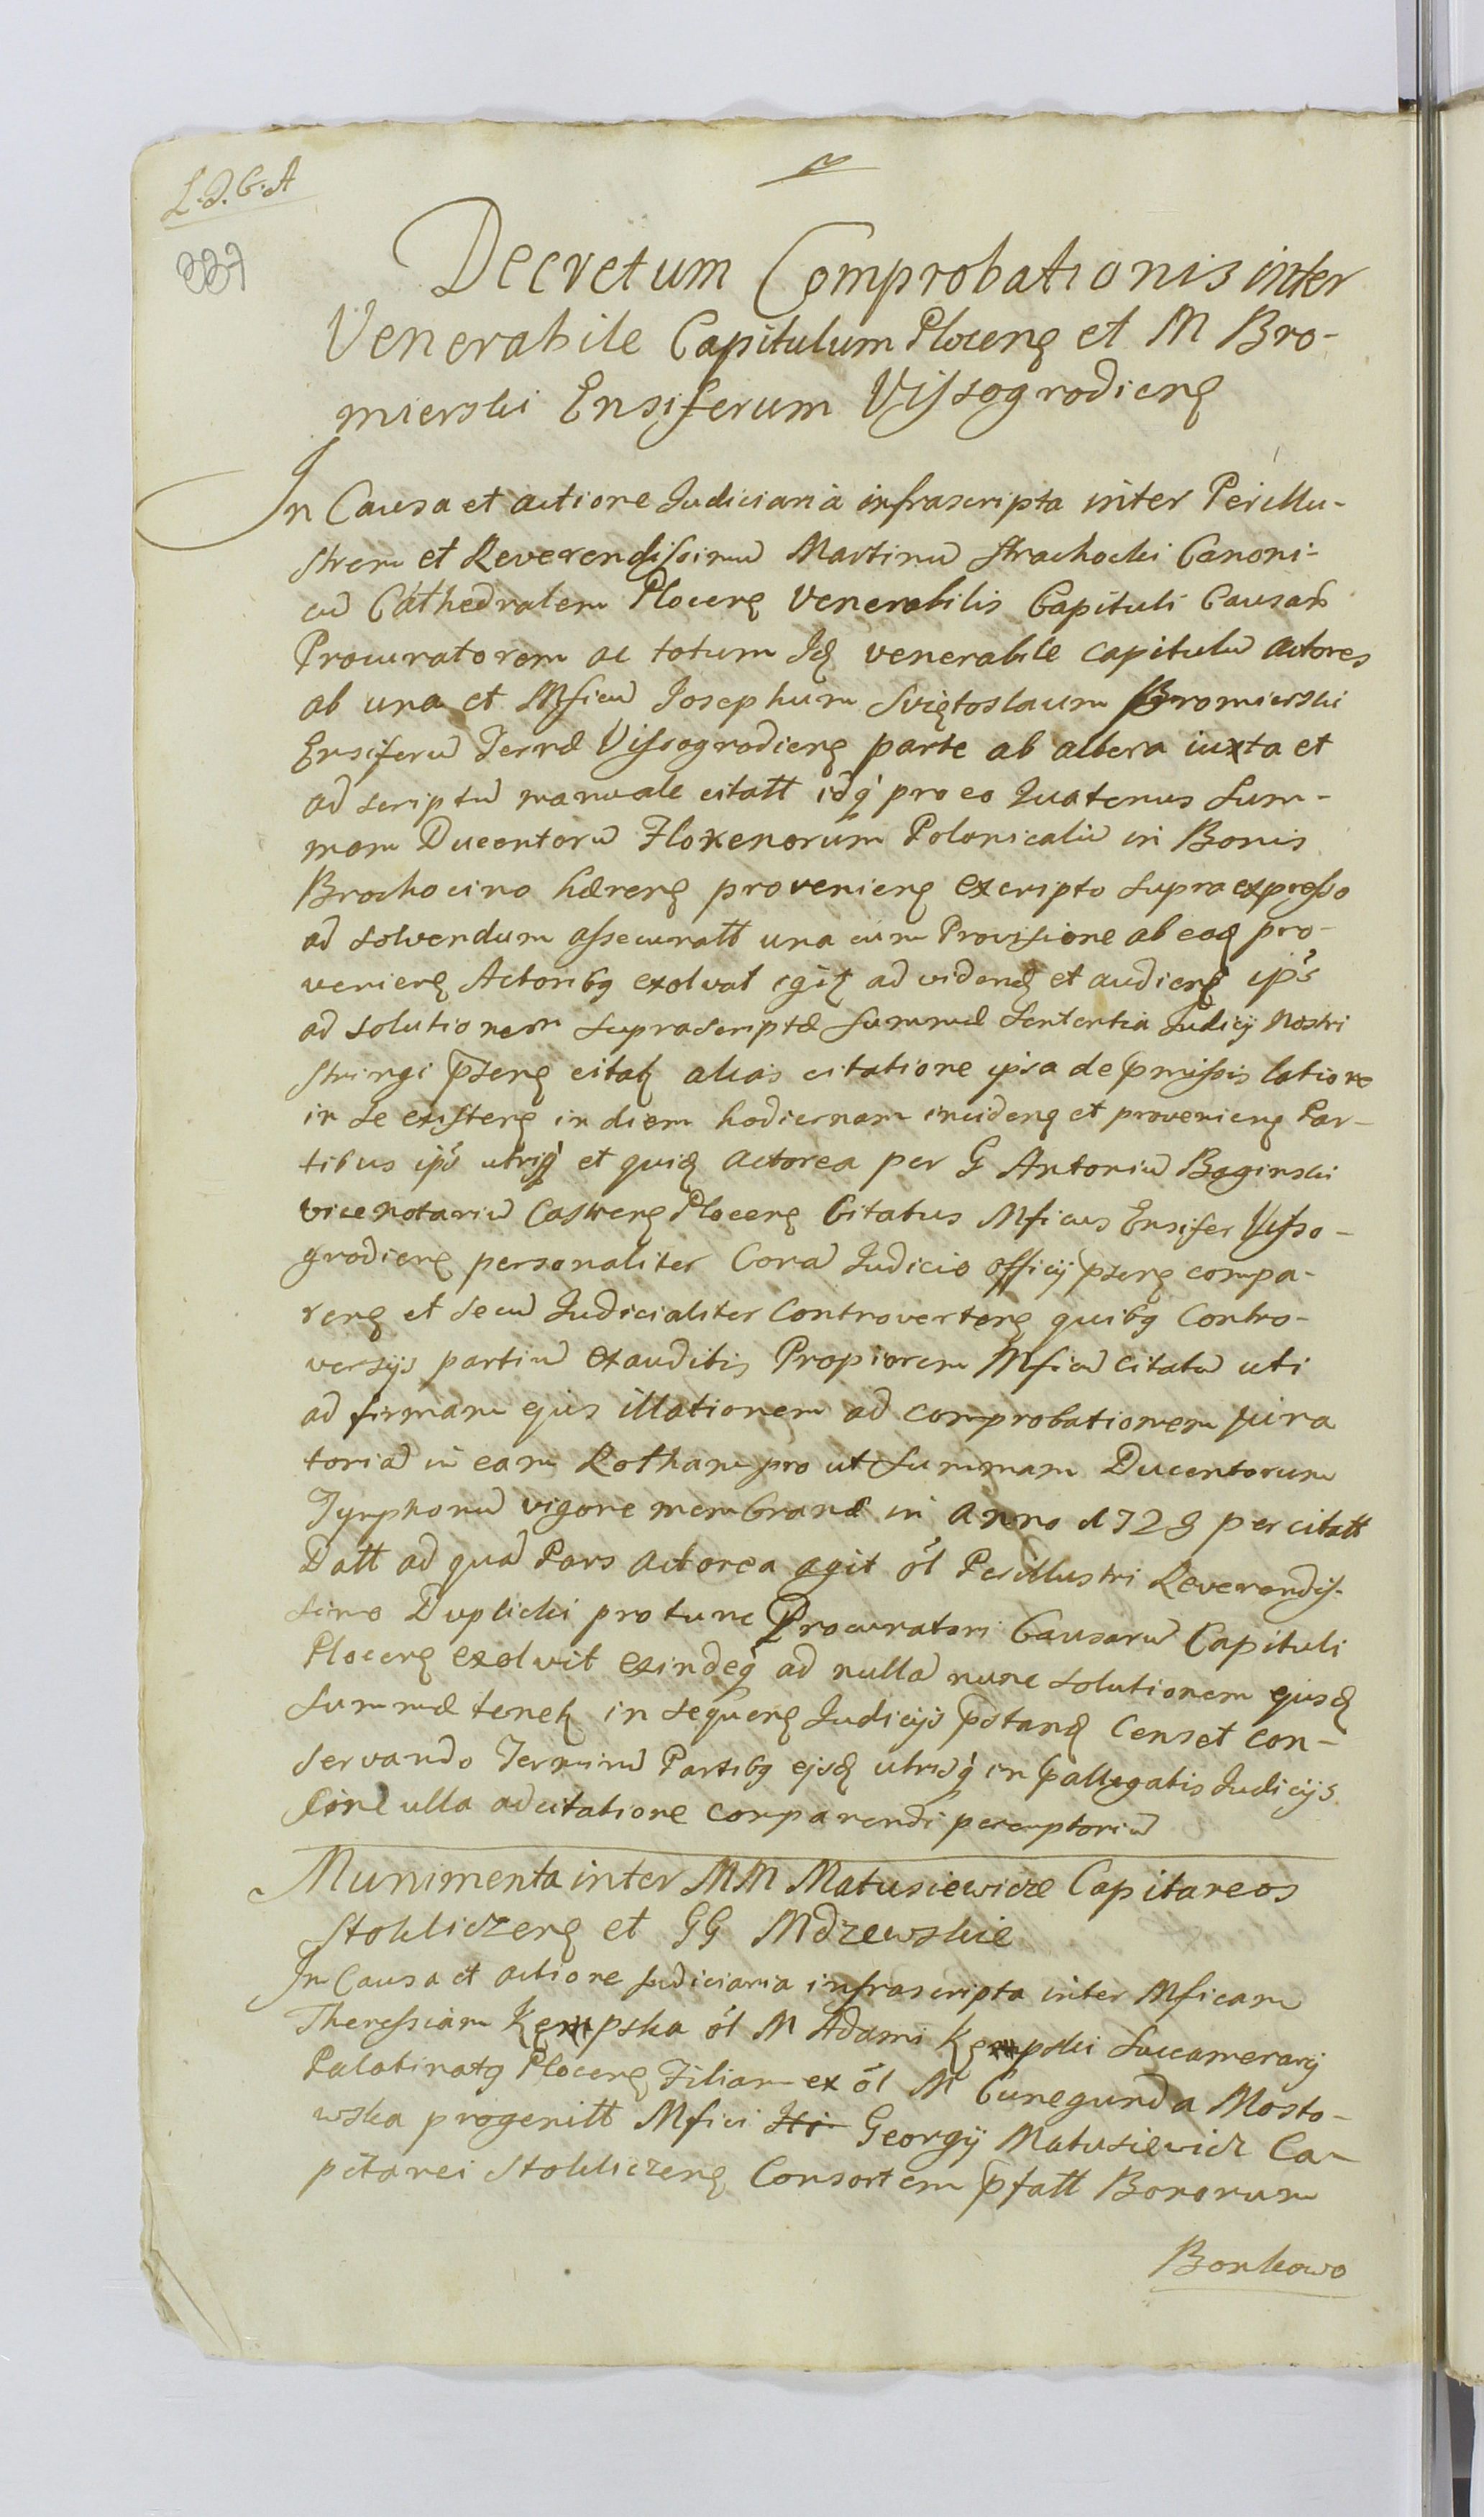 L.D.C.A
337
Decretum Comprobationis inter
Venerabile Capitulum Plocenȩ et M Bro-
mierski Ensiferum Vissogrodienȩ
In Causa et actione Judiciaria infrascripta inter Perillu-
strem et Reverendissimũ Martinũ Strachocki Canoni-
cũ Cathedralem Plocenȩ Venerabilis Capituli Causarũ
Procuratorem ac totum Idȩ venerabile capitulũ actores
ab una et Mficũ Josephum Swiętoslaum Bromierski
Ensiferũ Terræ Vissogrodienȩ parte ab altera iuxta et
ad scriptũ manuale citatt idq̃ pro eo Quatenus Sum-
mam Ducentorũ Florenorum Polonicaliũ in Bonis
Brochocino hærenȩ provenienȩ exscripto supra expresso
ad solvendum assecuratt una cum Provisione ab eadȩ pro-
venienȩ Actoribq exolvat igitȩ ad videndȩ et audienȩ ip̃s
ad solutionem suprascriptæ summæ Sententia Judicij Nostri
stringi p̃senȩ citatȩ alias citatione ipsa de p̃missis latiore
in se existenȩ in diem hodiernam incidenȩ et provenienȩ Par-
tibus ip̃s utrisq̃ et quidȩ actorea per G Antoniũ Baginski
vicenotariũ Castrenȩ Plocenȩ Citatus Mficus Ensifer Visso-
grodienȩ personaliter Corã Judicio officij p̃senȩ compa-
renȩ et secũ Judicialiter Controvertenȩ quibq Contro-
versijs partiũ exauditis Propiorem Mficũ citatũ uti
ad firmam ejus illationem ad comprobationem jura
toriã in eam Rotham pro ut Summam Ducentorum
Tynphonũ vigore membranæ in Anno 1728 per citatt
Datt ad quã Pars Actorea agit ol̃ Perillustri Reverendis-
simo Duplicki pro tunc Procuratori Causarũ Capituli
Plocenȩ exolvit exindeq̃ ad nullã nunc solutionem ejusdȩ
Summæ tenetȩ in sequenȩ Judicijs p̃standȩ Censet con-
servando Terminũ Partibq ejusdȩ utrisq̃ in p̃allegatis Judicijs
Sine ulla adcitatione comparendi peremptoriũ
Munimenta inter MM Matusiewicze Capitaneos
Stokliczenȩ et GG Mdzewskie
In Causa et actione Judiciaria infrascripta inter Mficam
Theressiam Kempska ol̃ M Adami Kempski Succamerarij
Palatinatq Plocenȩ Filiam ex ol̃ M Cunegunda Mosto-
wska progenitt Mfici Georgij Matusiewicz Ca-
pitanei Stokliczenȩ Consortem p̃fatt Bonorum
Bonkowo